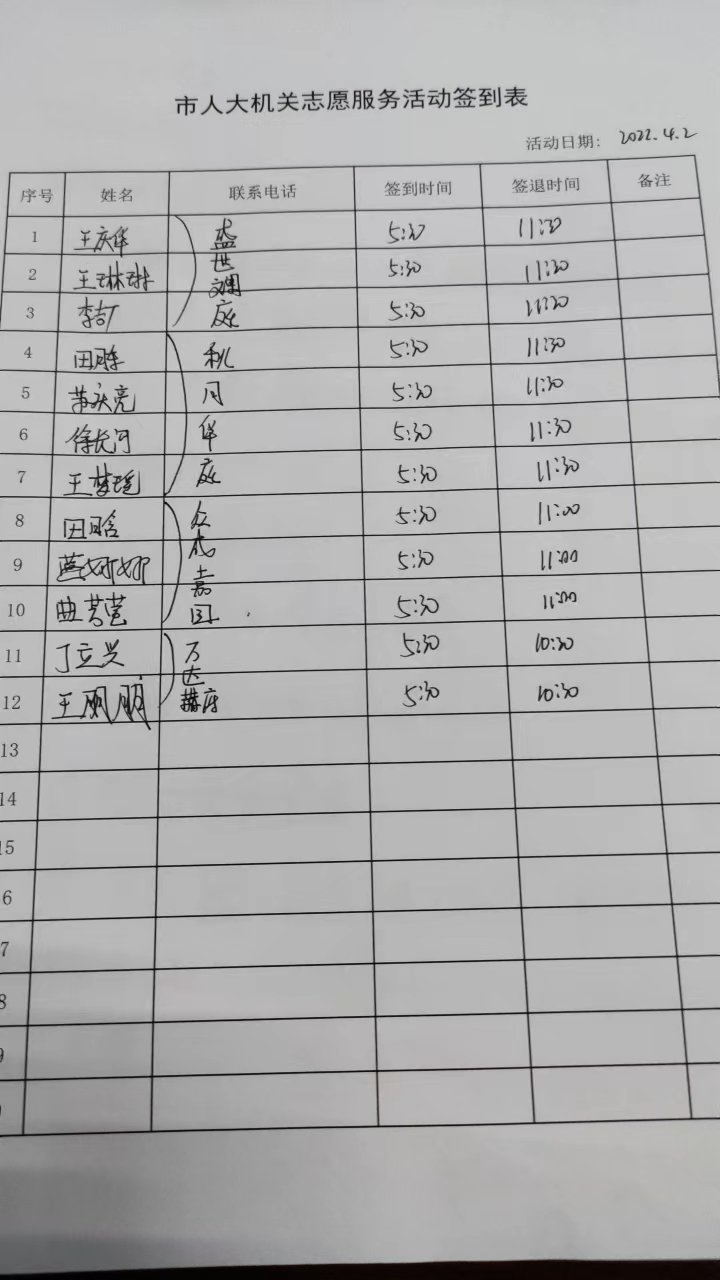 市人大机关志愿服务活动签到表
活动日期: 2022.4.2
序号 姓名 联系电话 签到时间 签退时间 备注
1 王庆华 盛 5:30 11:30
2 王琳琳 世 5:30 11:30
3 庭 5:30 11:30
4 田 和 5:30 11:30
5 苏庆亮 5:30 11:30
6 徐长河 华 5:30 11:30
7 王梦瑶 庭 5:30 11:30
8 田晗 5:30 11:00
9 5:30 11:00
10 曲 嘉园 5:30 11:00
11 丁立兴 万 5:30 10:30
12 王丽 达 5:30 10:30
13
14
15
6
7
8
9